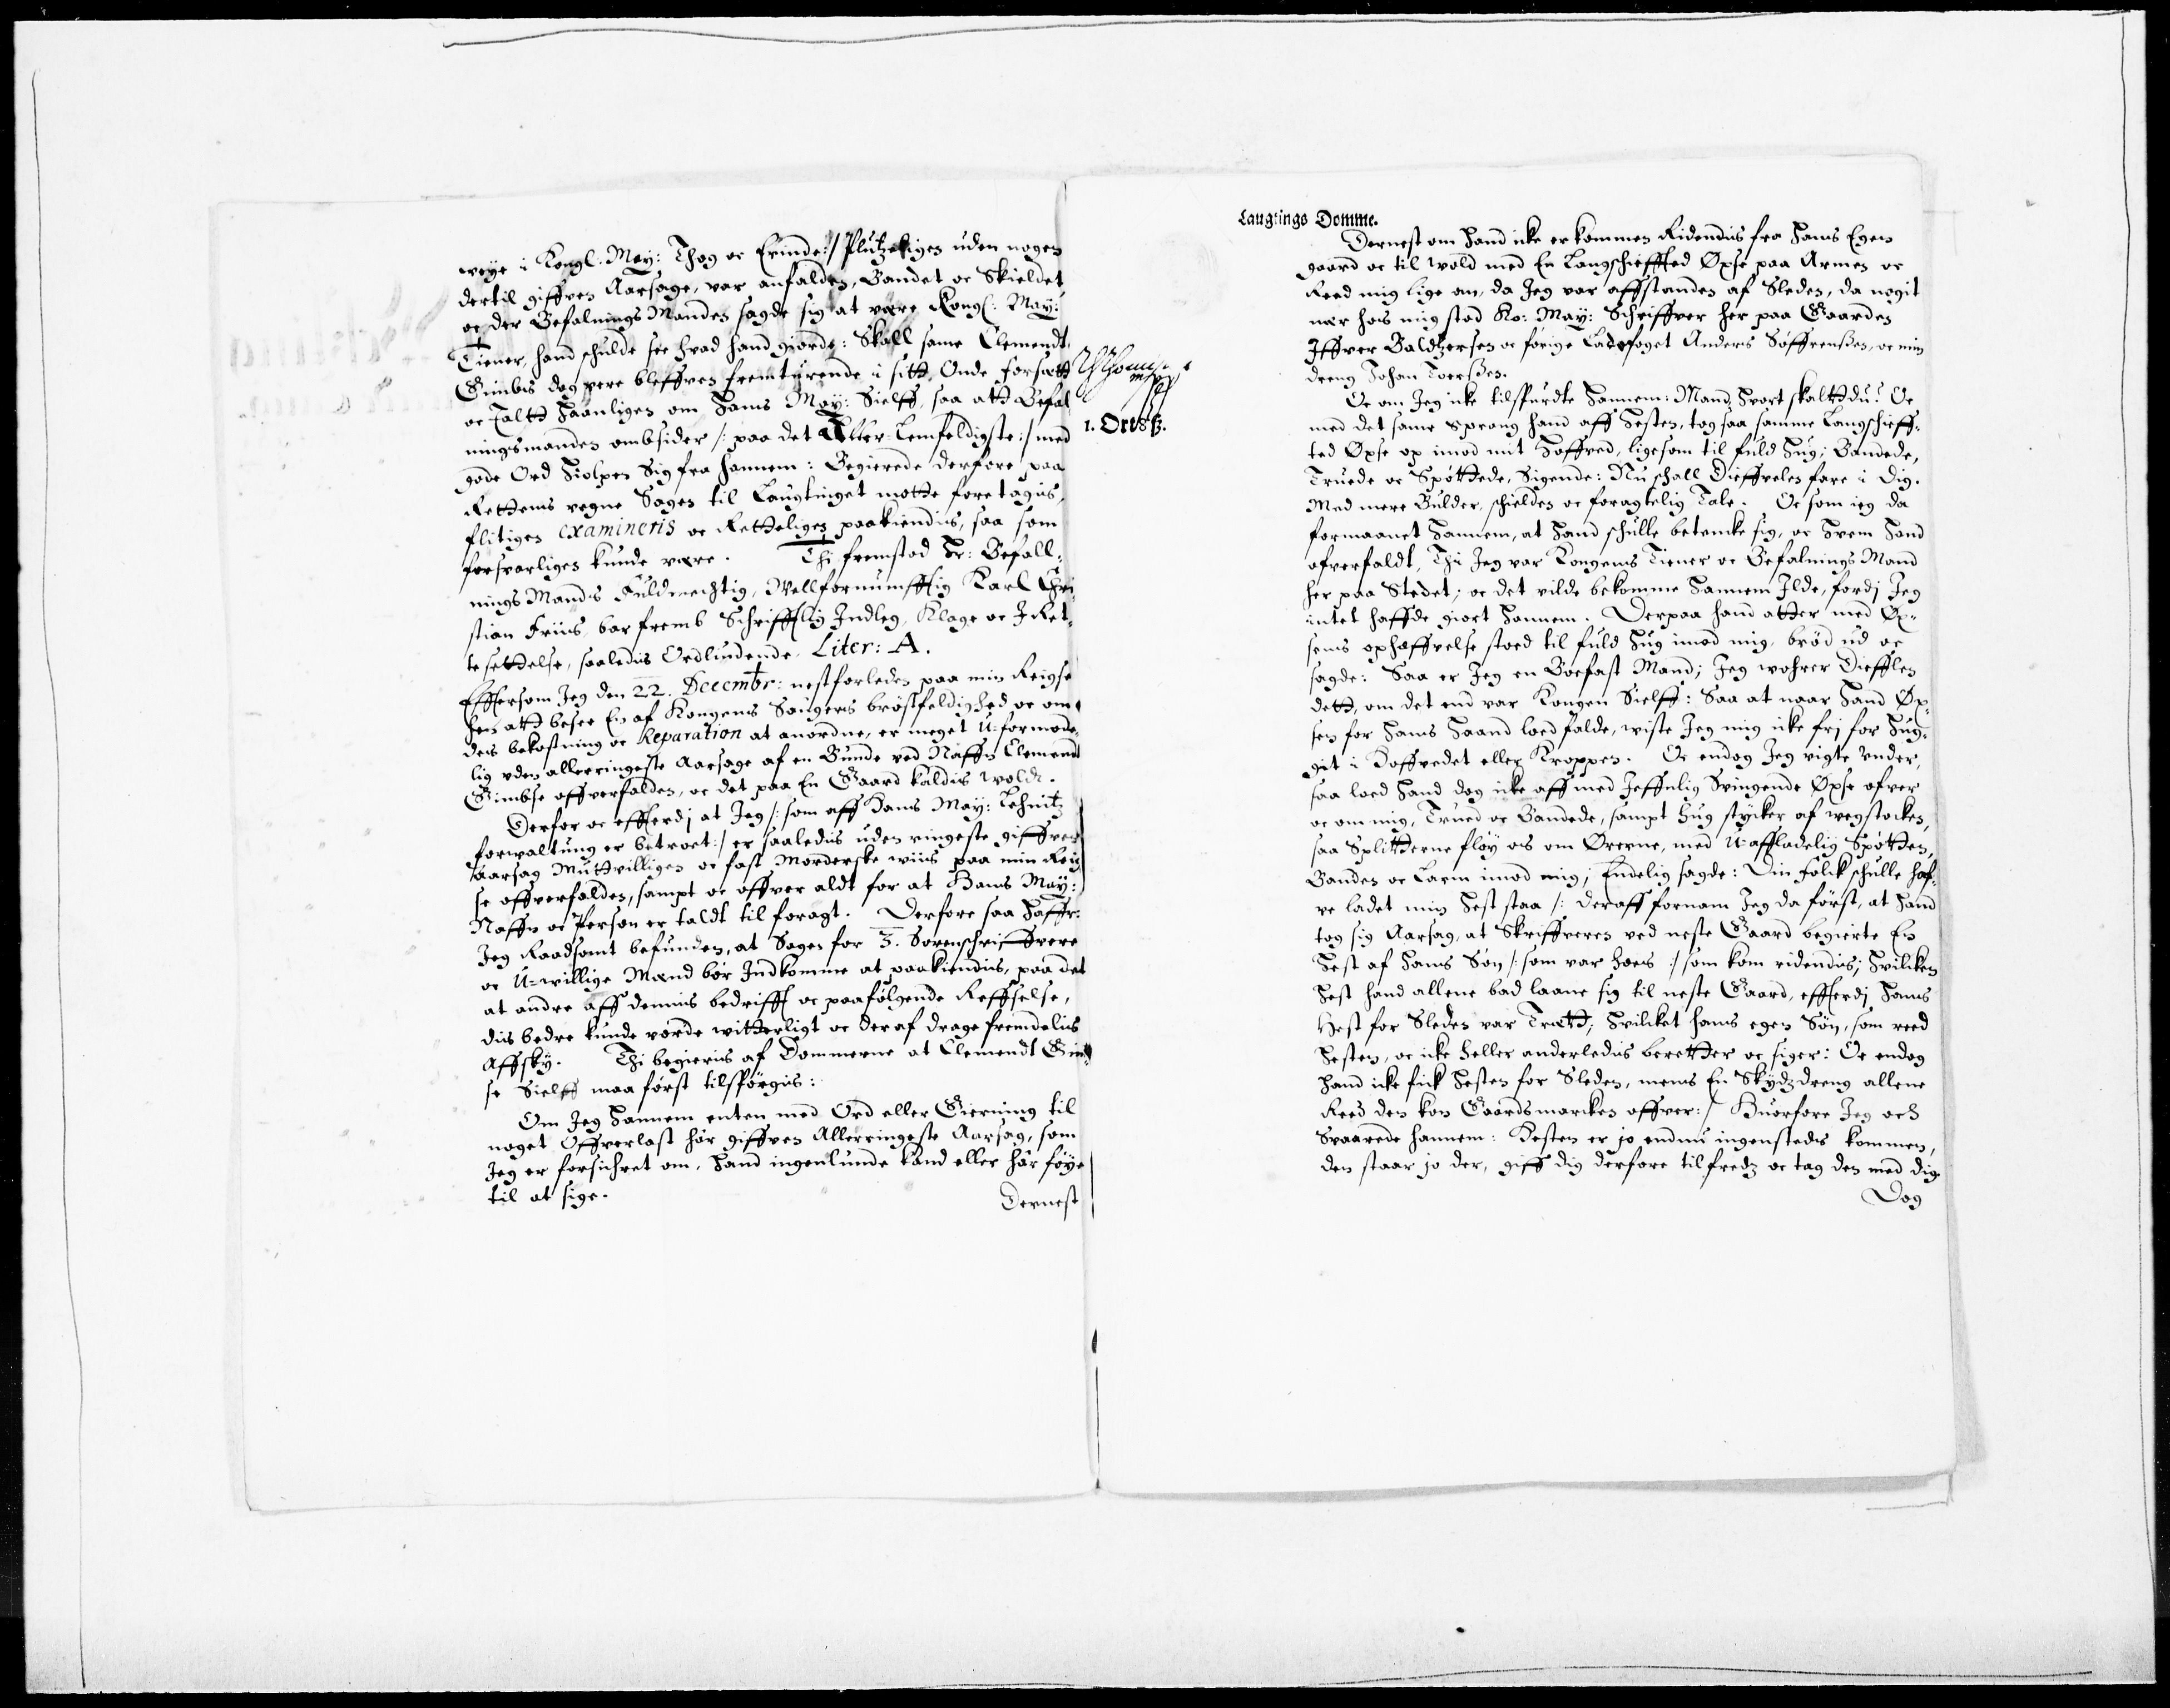 weye i Kongl: May: Thog oc Erinde:/ Plutzeligen uden nogen
dertil giffven Aarsage, var anfalden, Bandet oc Skieldet,
oc der Befalnings Manden sagde sig at være Kongl: May:
Tiener, hand schulde see hvad hand giorde: Skall same Clemendt
Gimbis dog yere bleffven fremturende i sitt Onde forsætt
oc taltt haanligen om Hans May: Sielff, saa att Befal
ningsmanden ombsider /: paa det Aller-Lemfeldigste :/ med
gode Ord hiolpen Sig fra hannem: Begierede derfore paa
Rettens vegne Sagen til Laugtinget motte foretagis,
flitigen examineris oc Retteligen paakiendis, saa som
forsvarligen kunde være. Thi fremstod Hr: Befall:
nings Mands Fuldmechtig, Wellfornumfftig Karl Chri
stian Friis, bar fremb Schrifftlig Indleg, Klage oc I Ret-
te settelse, saaledis Ordlindende. Liter: A.
Efftersom Jeg den 22. Decembr: nestforleden paa min Reigse
hen att besee En af Kongens Saugers brøstfeldighed oc om
dens bekostning oc Reparation at anordne, er meget U:formode
lig uden allerringeste Aarsage af en Bunde ved Naffn Clemendt
Gimbse offverfalden, oc det paa En Gaard kaldis Wold.
Derfor oc effterdj at Jeg /: som aff Hans May: Lehnitz
forwaltung er betroet:/ er saaledis uden ringeste giffven
Aarsag Muttvilligen oc fast Morderske wiis paa min Reig
se offverfalden, sampt oc offver aldt for at Hans May:
Naffn oc Person er taldt til foragt. Derfore saa haffr:
Jeg Raadsomt befunden, at Sagen for 3. Sorenschriffvere
oc U-willige Mænd bør Indkomme at paakiendis, paa det
at andre aff dennis bedrifft oc paafølgende Reffselse,
dis bedre kunde vorde witterligt oc deraf drage fremdelis
Affsky. Thi begieris af Dommerne at Clemendt Gim
se Sielff maa først tilspørgis:
Om Jeg hannem enten med Ord eller Gierning til
noget Offverlast har giffven Allerringeste Aarsag, som
Jeg er forsichret om, hand ingenlunde kand eller har føye
til at sige.
Dernest
1. Ort 8 ß.
Laugtings Domme.
Dernest om hand icke er kommen Ridendis fra hans Egen
gaard oc til wold med En Langschiefftted Øxse paa Armen oc
Reed mig lige an, da Jeg var affstanden af Sleden, da nogit
nær hos mig stod Ko: May: Schriffver her paa Gaarden
Iffver Baldtzersen oc forige Ladefoget Anders Søffrensen, oc min
dreng Johan Toersen.
Oc om Jeg icke tilspurdte hannem: Mand, hvort skaltt du? Oc
med det same sprang hand aff hesten, tog saa samme Langschieff-
ted Øxse op imod mit hoffved, ligesom til fuld hug; Bandede,
Truede oc Spøttede, Sigende: Nu schall Dieffvelen fare i Dig.
Med mere Bulder, schielden oc foragtelig Tale. Oc som ieg da
formaanet hannem, at hand schulle betencke sig, oc hvem hand
ofverfaldt, Thi Jeg var Kongens Tiener oc Befalnings Mand
her paa Stedet; oc det vilde bekomme hannem Ilde, fordj Jeg
intet haffde giort hannem. Derpaa hand atter med Øx-
sens ophæffvelse stoed til fuld hug imod mig, brød ud oc
sagde: Saa er Jeg en Boefast Mand; Jeg wohrer Dieffelen
dett, om det end var Kongen Sielff: Saa at naar hand Øx-
sen for hans haand loed falde, wiste Jeg mig icke frj for hug-
git i hoffvedet eller Kroppen. Oc endog Jeg vigte under,
saa loed hand dog icke aff med Jeffnlig Svingende Øxse ofver
oc om mig, Trued oc Bandede, sampt hug stycker af wegstocken,
saa Splitterne fløy os om Ørerne, med U-affladelig Spøtten,
Banden oc Larm imod mig; Endelig sagde: Din folck schulle haf-
ve ladet min hest staa /: deraff fornam Jeg da først, at hand
tog sig Aarsag, at Skriffveren ved neste Gaard begierte En
hest af hans Søn /: som var hoes :/ som kom ridendis; hvilcken
hest hand allene bad laane sig til neste Gaard, effterdj hans
Hest for Sleden var Trætt; hvilcket hans egen Søn, som reed
hesten, oc icke heller anderledis beretter oc siger: Oc endog
hand icke fick hesten for Sleden, mens En Skydzdreng allene
Reed den kon Gaardsmarcken offver:/ Huorfore Jeg och
Svaarede hannem: Hesten er jo endnu ingensteds kommen,
den staar jo der, giff dig derfore tilfredz oc tag den med dig.
Dog